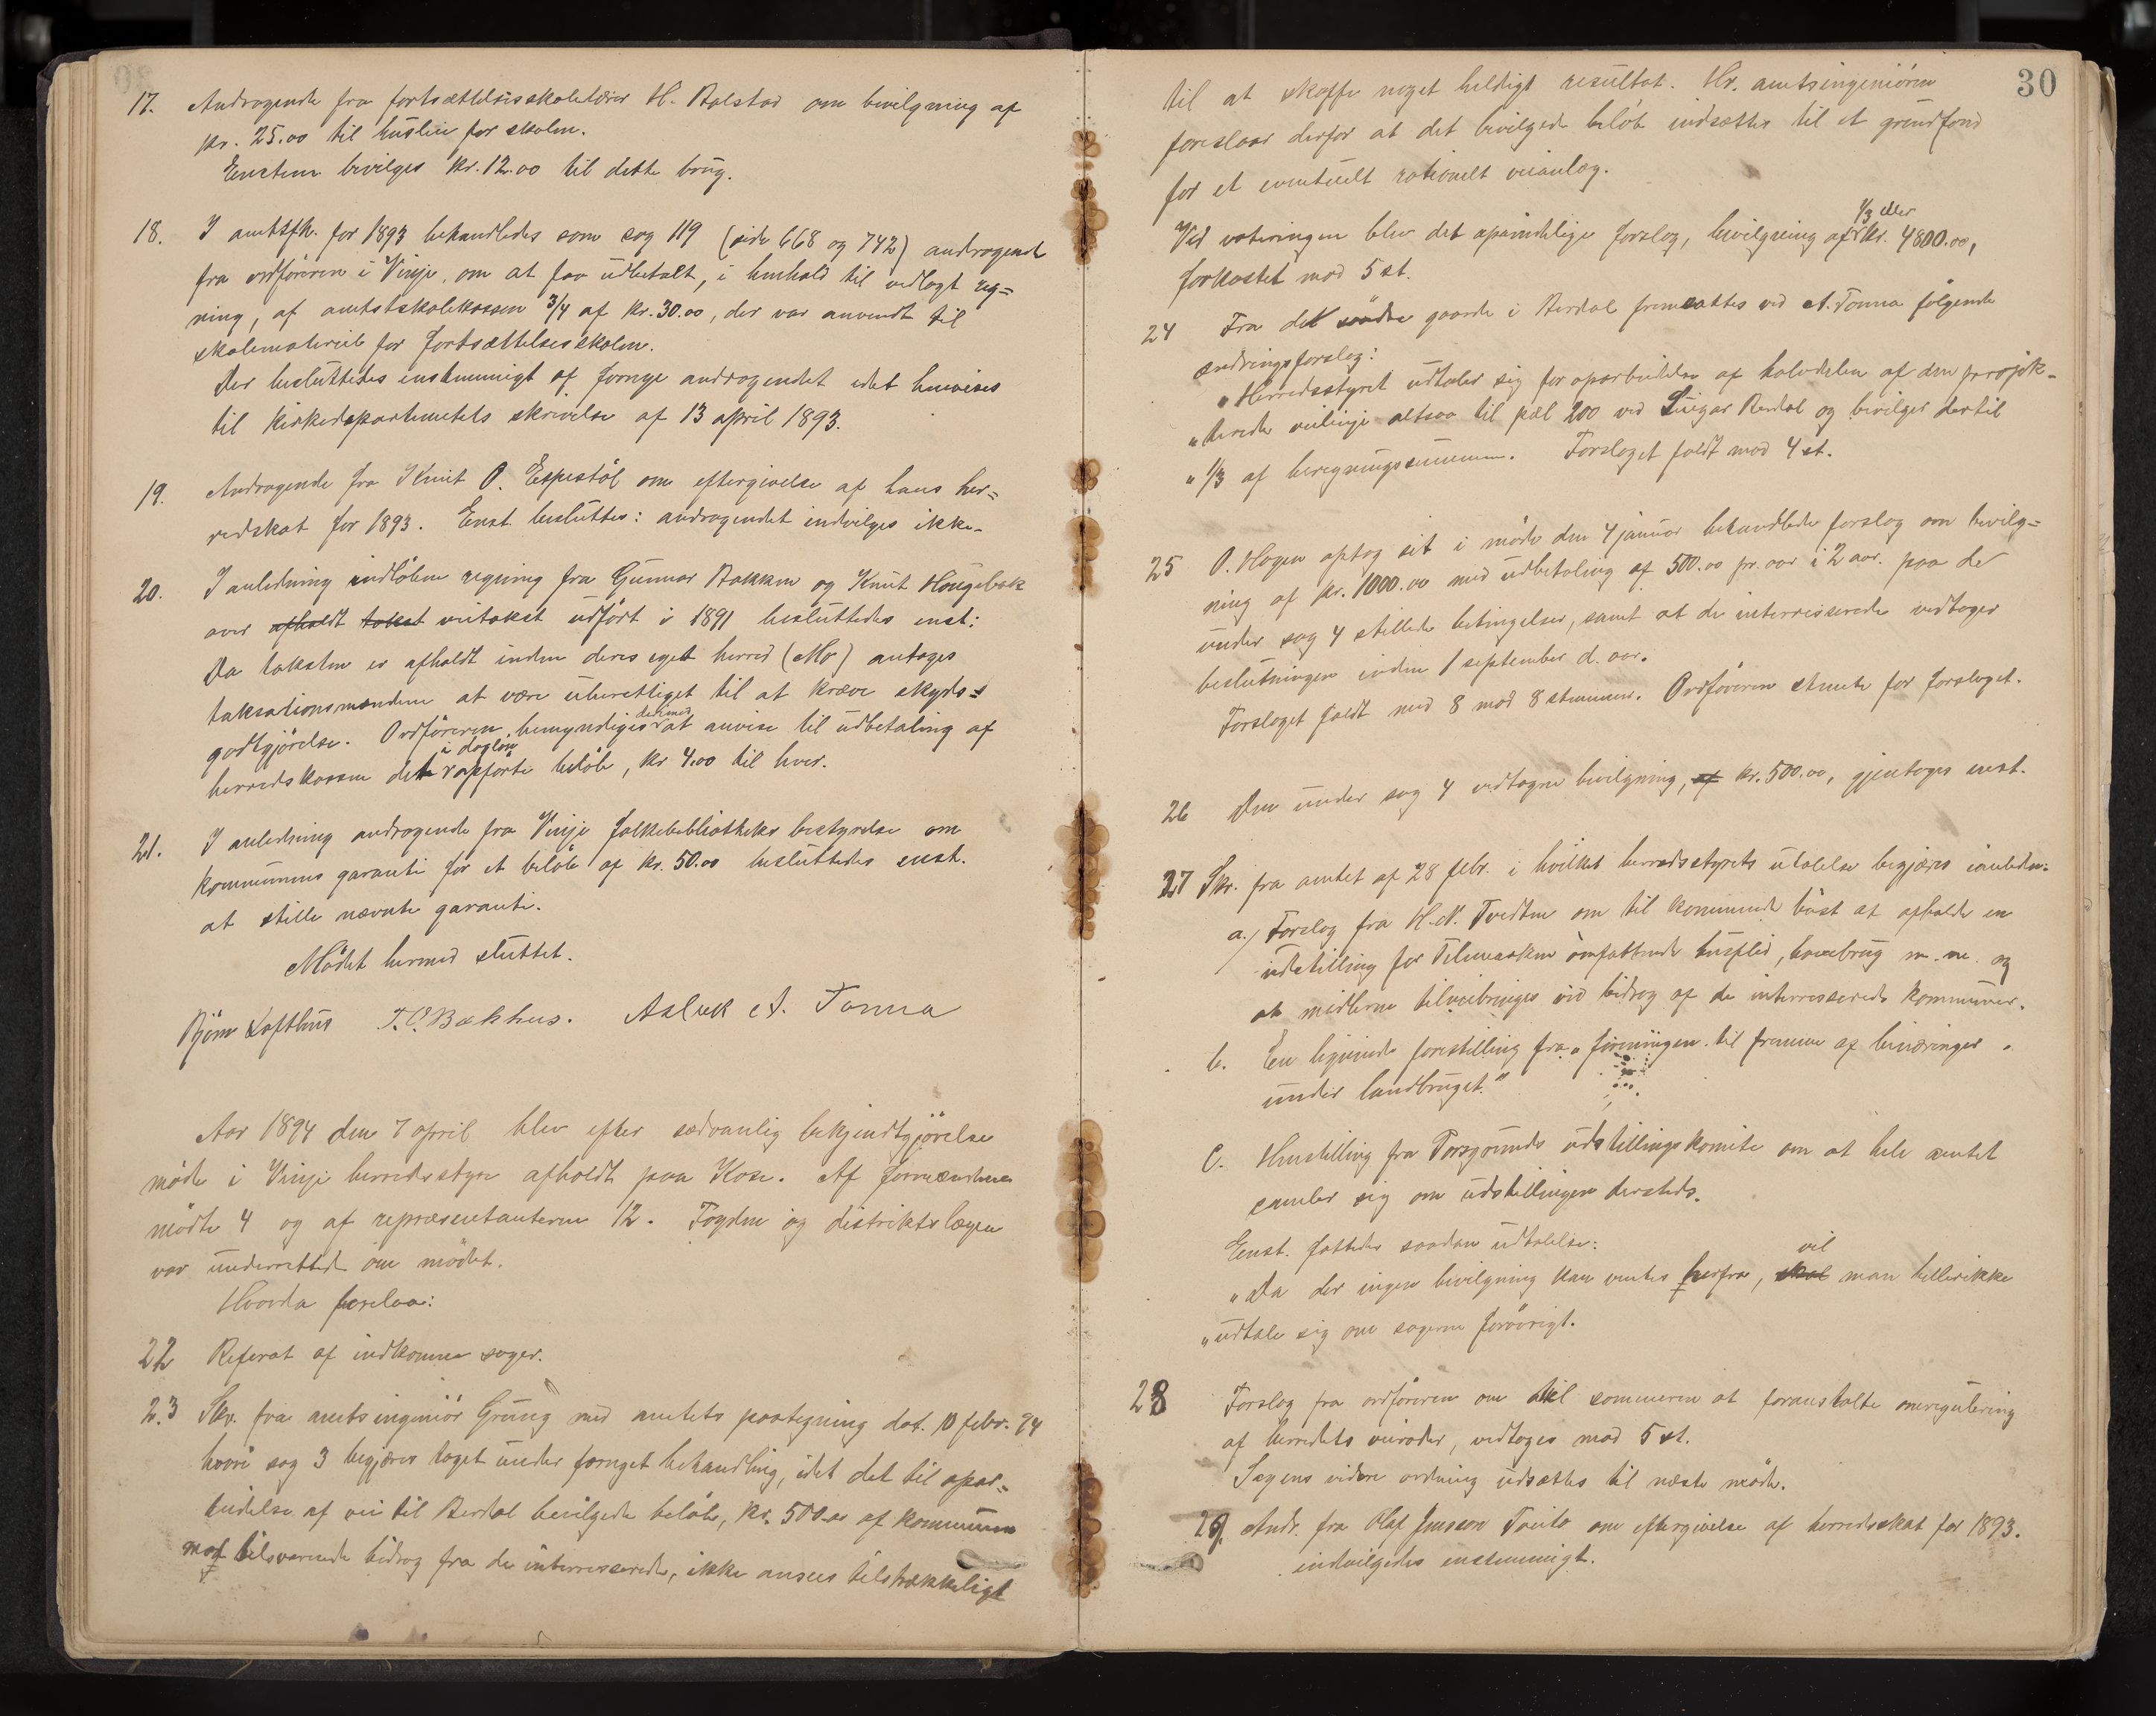 17. Andragende fra fortsættelsesskolelærer H. Balstad om bevilgning af
kr. 25.00 til husleie for skolen.
Enstem. bevilges kr. 12.00 til dette brug.
18. I amtsfh. for 1893 behandledes som sag 119 (side 668 og 742) andragende
fra ordföreren i Vinje, om at faa udbetalt, i henhold til vedlagt reg=
ning, af amtsskolekassen 3/4 af kr. 30.00, der var anvendt til
skolemateriel for fortsættelsesskolen.
Der besluttedes enstemmigt at fornye andragendet idet henvises
til kirkedepartementets skrivelse af 13 april 1893.
19. Andragende fra Knut O. Espestöl om eftergivelse af hans her=
redskat for 1893. Enst. besluttes: andragendet indvilges ikke.
20. I anledning indlöbne regning fra Gunnar Bakken og Knut Haugebak
over afholdt takst veitakst udfört i 1891 besluttedes enst:
Da taksten er afholdt inden deres eget herred (Mo) antages
taksationsmændene at være uberettiget til at kræve skyds=
godtgjörelse. Ordföreren bemyndiges derimod at anvise til udbetaling af
herredskassen det i daglön opförte belöb, kr 4.00 til hver.
21. I anledning andragende fra Vinje folkebibliotheks bestyrelse om
kommunens garanti for et belöb af kr. 50.00 besluttedes enst.
at stille nævnte garanti.
Mödet hermed sluttet.
Björn Lofthus T. O. Bakhus. Aslak A. Tonna
Aar 1894 den 7 april blev efter sædvanlig bekjendtgjörelse
möde i Vinje herredsstyre afholdt paa Kose. Af formændene
mödte 4 og af repræsentanterne 12. Fogden og distriktslægen
var underrettede om mödet.
Hvorda forelaa:
22 Referat af indkomne sager.
23 Skr. fra amtsingeniör Grung med amtets paategning dat. 10 febr. 94
hvori sag 3 begjæres taget under fornyet behandling, idet det til opar=
beidelse af vei til Berdal bevilgede belöb, kr. 500.00 af kommunen
mod tilsvarende bidrag fra de interresserede, ikke ansees tilstrækkeligt
30
til at skaffe noget heldigt resultat. Hr. amtsingeniören
foreslaar derfor at det bevilgede belöb indsættes til et grundfond
for et eventuelt rationelt veianlæg.
Ved voteringen blev det oprindelige forslag, bevilgning af 1/3 eller kr. 4800.00,
forkastet mod 5 st.
24 Fra de söndre gaarde i Berdal fremsattes ved A. Tonna fölgende
ændringsforslag:
"Herredsstyret udtaler sig for oparbeidelse af halvdelen af den projek-
"terede veilinje altsaa til pæl 200 ved Berdal og bevilger dertil
"1/3 af beregningssummen. Forslaget faldt mod 4 st.
25 O. Hagen optog sit i möde den 4 januar behandlede forslag om bevilg=
ning af kr. 1000.00 med udbetaling af 500.00 pr. aar i 2 aar. paa de
under sag 4 stillede betingelser, samt at de interresserede vedtager
beslutningen inden 1 september d. aar.
Forslaget faldt med 8 mod 8 stemmer. Ordföreren stemte for forslaget.
26 Den under sag 4 vedtagne bevilgning, af kr. 500.00, gjentoges enst.
27 Skr. fra amtet af 28 febr. i hvilket herredsstyrets udtalelse begjæres i anledn:
a.) Forslag fra H. N. Tvedten om til kommende höst at afholde en
udstilling for Telemarken omfattende husflid, havebrug m. m. og
at midlerne tilveiebringes ved bidrag af de interresserede kommuner.
b. En lignende forestilling fra "foreningen til fremme af binæringer
under landbruget."
c. Henstilling fra Porsgrunds udstillingskomite om at hele amtet
samler sig om udstillingen dersteds.
Enst. fattedes saadan udtalelse:
"Da der ingen bevilgning kan ventes herfra, skal vil man heller ikke
"udtale sig om sagerne forövrigt.
28 Forslag fra ordföreren om til sommeren at foranstalte omregulering
af herredets veiroder, vedtoges mod 5 st.
Sagens videre ordning udsættes til næste möde.
29 Andr. fra Olaf Jensson Tveito om eftergivelse af herredsskat for 1893.
indvilgedes enstemmigt.